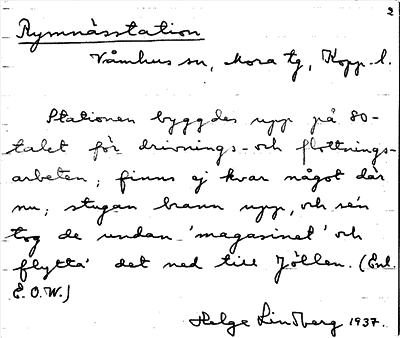 2
Rymnässtation
Våmhus sn, Mora tg, Kopp. l.
Stationen byggdes upp på 80-
talet för drivnings- och flottnings-
arbeten; finns ej kvar något där
nu; stugan brann upp, och se'n
tog de undan 'magasinet' och
flytta' det ned till Jöllen. (Enl.
E.O.W.)
Helge Lindberg 1937.